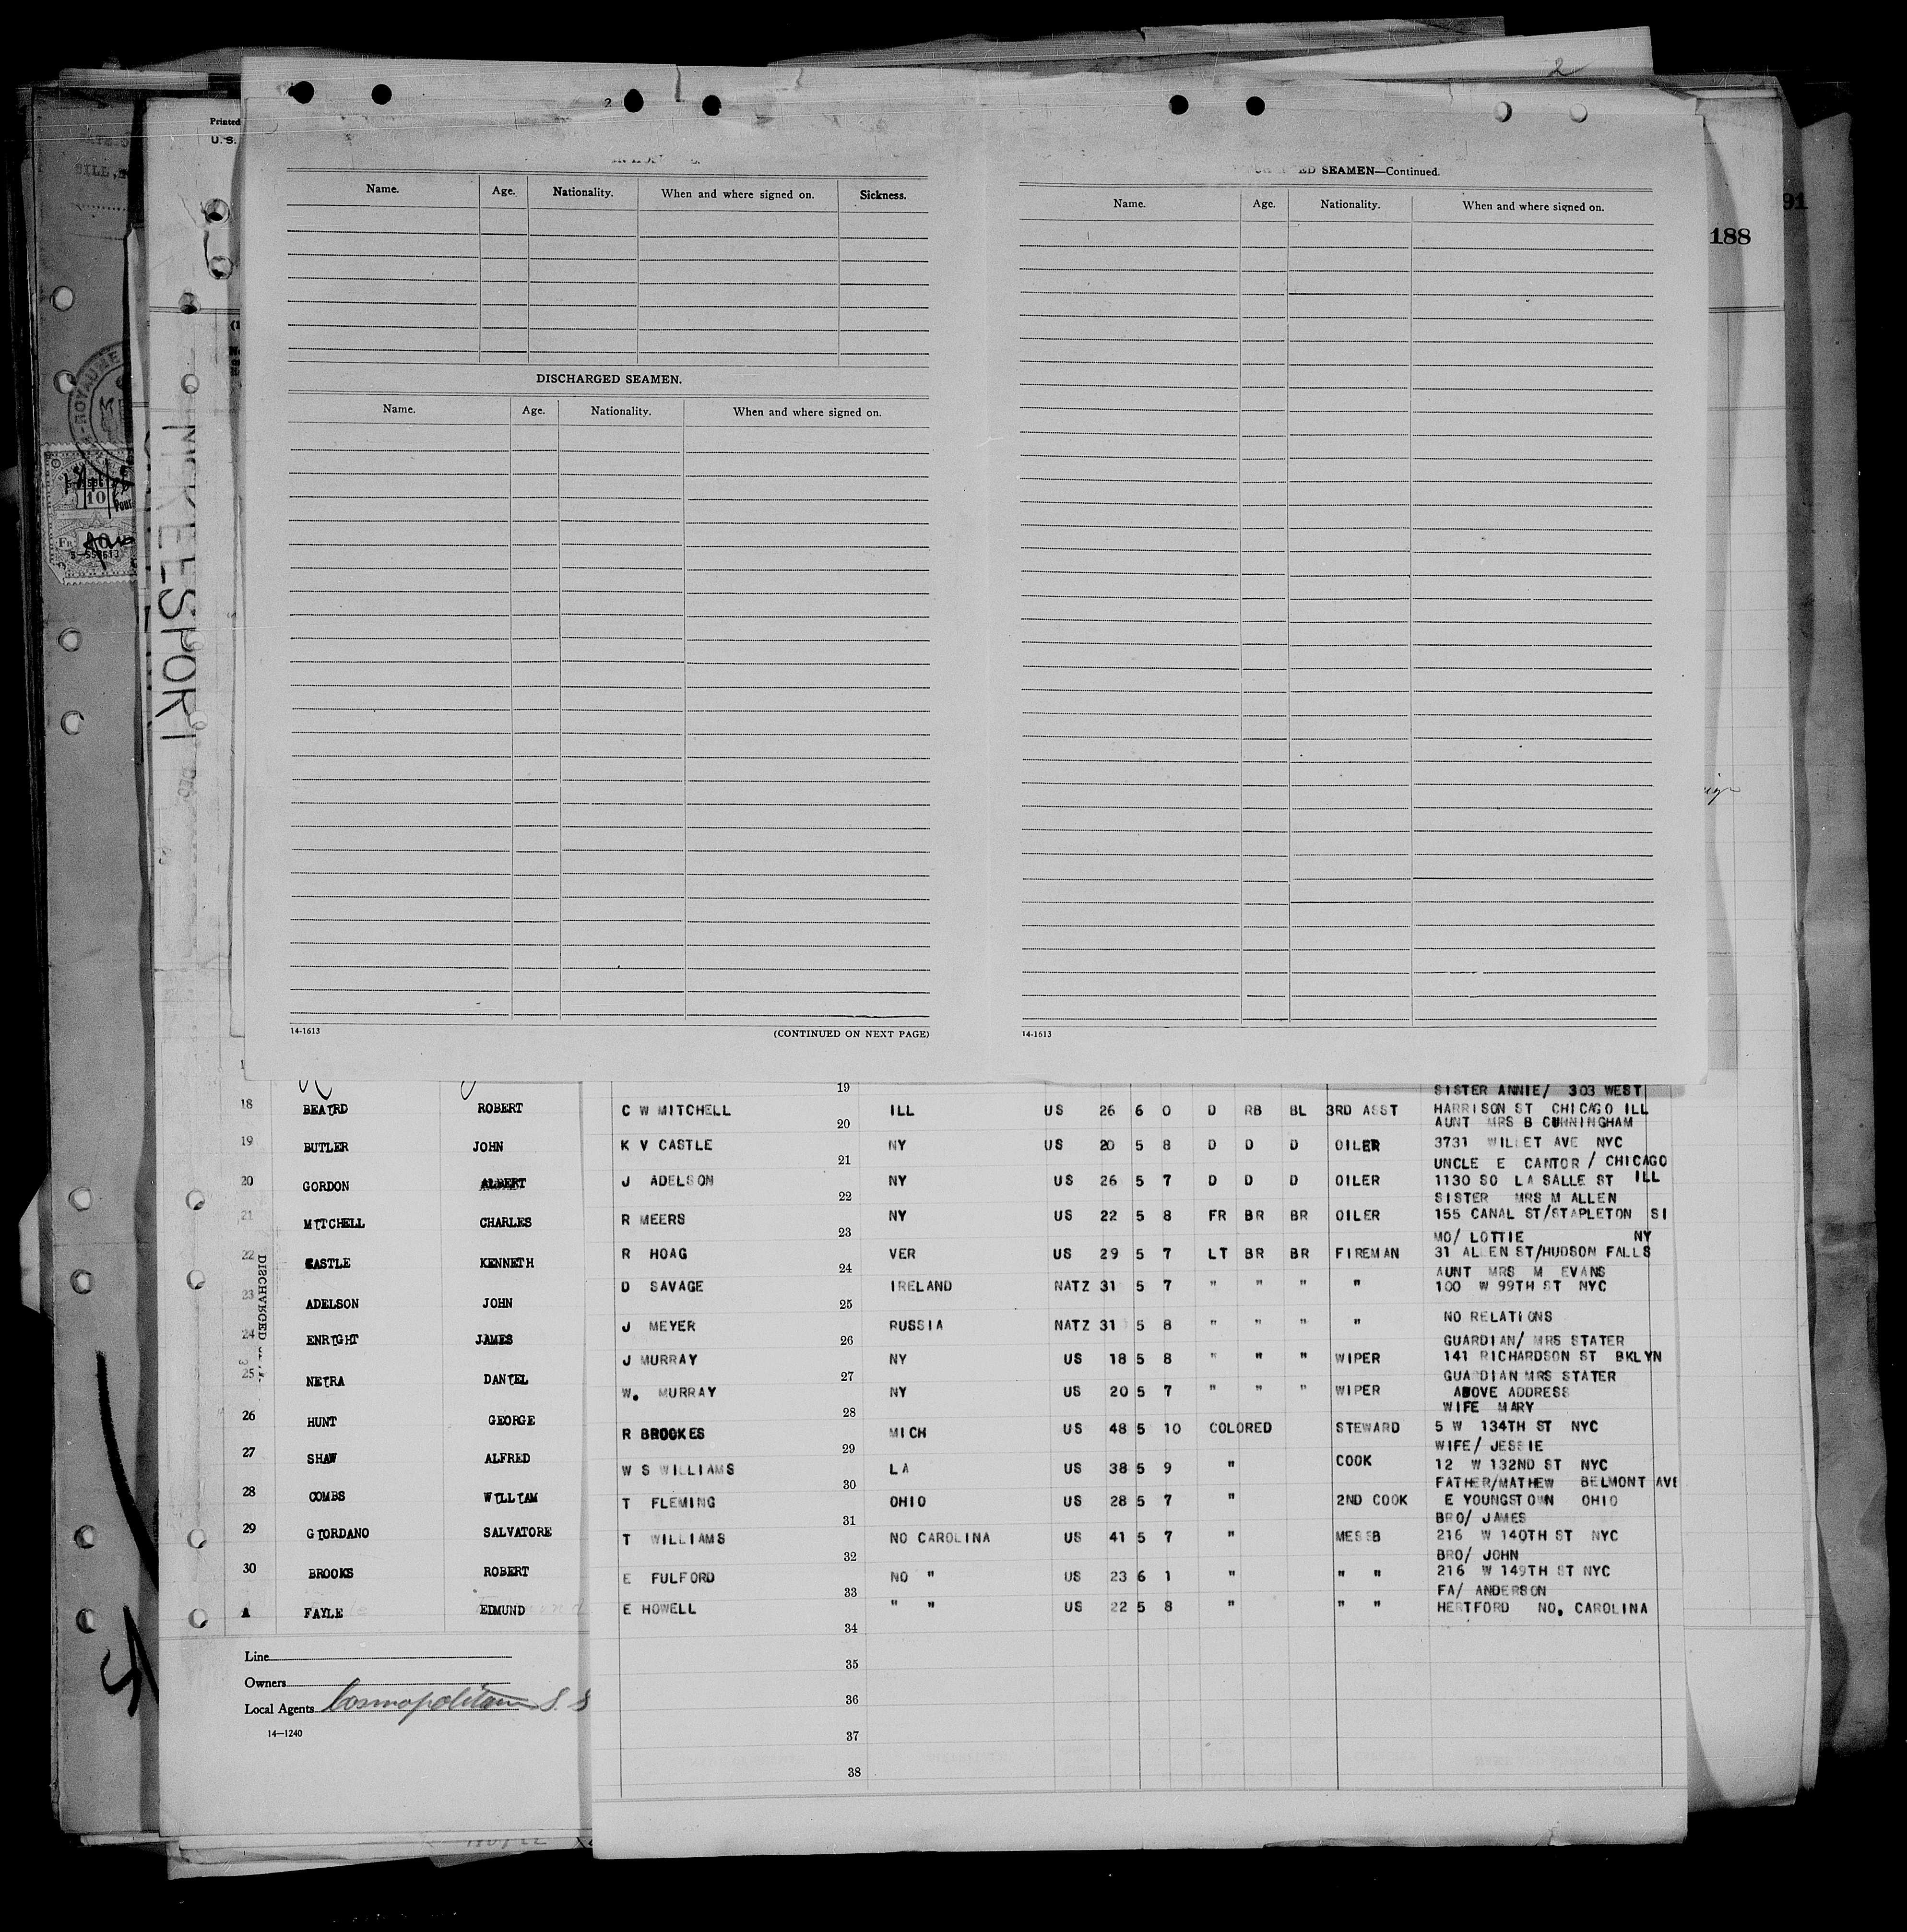 2
2
Printed
U. S.
91
188
ED SEAMEN—Continued.
Name. Age. Nationality. When and where signed on. Sickness.
Name. Age. Nationality. When and where signed on.
DISCHARGED SEAMEN.
Name. Age. Nationality. When and where signed on.
14-1613 (CONTINUED ON NEXT PAGE)
14-1613
ROYAUME
10
Pour
FR
McKEESPORT
DISCHARGED
18 BEAIRD ROBERT
19 BUTLER JOHN
20 GORDON ALBERT
21 MITCHELL CHARLES
22 CASTLE KENNETH
23 ADELSON JOHN
24 ENRIGHT JAMES
25 NEIRA DANIEL
26 HUNT GEORGE
27 SHAW ALFRED
28 COMBS WILLIAM
29 GIORDANO SALVATORE
30 BROOKS ROBERT
A FAYLE EDMUND
Line
Owners
Local Agents Cosmopolitan S. S
14—1240
19 SISTER ANNIE/ 303 WEST
C W MITCHELL ILL US 26 6 0 D RB BL 3RD ASST HARRISON ST CHICAGO ILL
20 AUNT MRS B CUNNINGHAM
K V CASTLE NY US 20 5 8 D D D OILER 3731 WILLET AVE NYC
21 UNCLE E CANTOR / CHICAGO
J ADELSON NY US 26 5 7 D D D OILER 1130 SO LA SALLE ST ILL
22 SISTER MRS M ALLEN
R MEERS NY US 22 5 8 FR BR BR OILER 155 CANAL ST/STAPLETON SI
23 MO/ LOTTIE NY
R HOAG VER US 29 5 7 LT BR BR FIREMAN 31 ALLEN ST/HUDSON FALLS
24 AUNT MRS M EVANS
D SAVAGE IRELAND NATZ 31 5 7 " " " " 100 W 99TH ST NYC
25 NO RELATIONS
J MEYER RUSSIA NATZ 31 5 8 " " " "
26 GUARDIAN/ MRS STATER
J MURRAY NY US 18 5 8 " " " WIPER 141 RICHARDSON ST BKLYN
27 GUARDIAN MRS STATER
W. MURRAY NY US 20 5 7 " " " WIPER ABOVE ADDRESS
28 WIFE MARY
R BROOKES MICH US 48 5 10 COLORED STEWARD 5 W 134TH ST NYC
29 WIFE/ JESSIE
W S WILLIAMS LA US 38 5 9 " COOK 12 W 132ND ST NYC
30 FATHER/MATHEW BELMONT AVE
T FLEMING OHIO US 28 5 7 " 2ND COOK E YOUNGSTOWN OHIO
31 BRO/ JAMES
T WILLIAMS NO CAROLINA US 41 5 7 " MESSB 216 W 140TH ST NYC
32 BRO/ JOHN
E FULFORD NO " US 23 6 1 " " " 216 W 149TH ST NYC
33 FA/ ANDERSON
E HOWELL " " US 22 5 8 " " " HERTFORD NO. CAROLINA
34
35
36
37
38